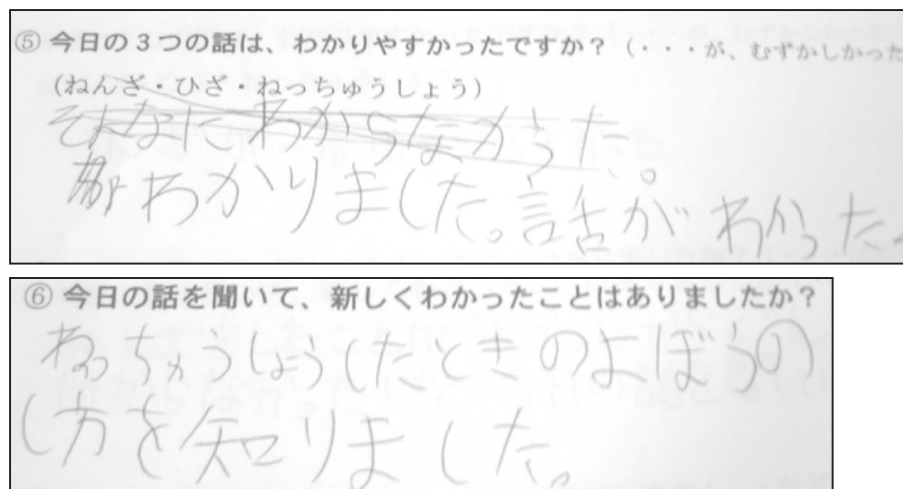 ⑤ 今日の3つの話は、わかりやすかったですか？（・・・が、むずかしかった
（ねんざ・ひざ・ねっちゅうしょう）
そんなにわからなかった。
わかりました。話がわかった。
⑥ 今日の話を聞いて、新しくわかったことはありましたか？
ねっちゅうしょうしたときのよぼうの
し方を知りました。